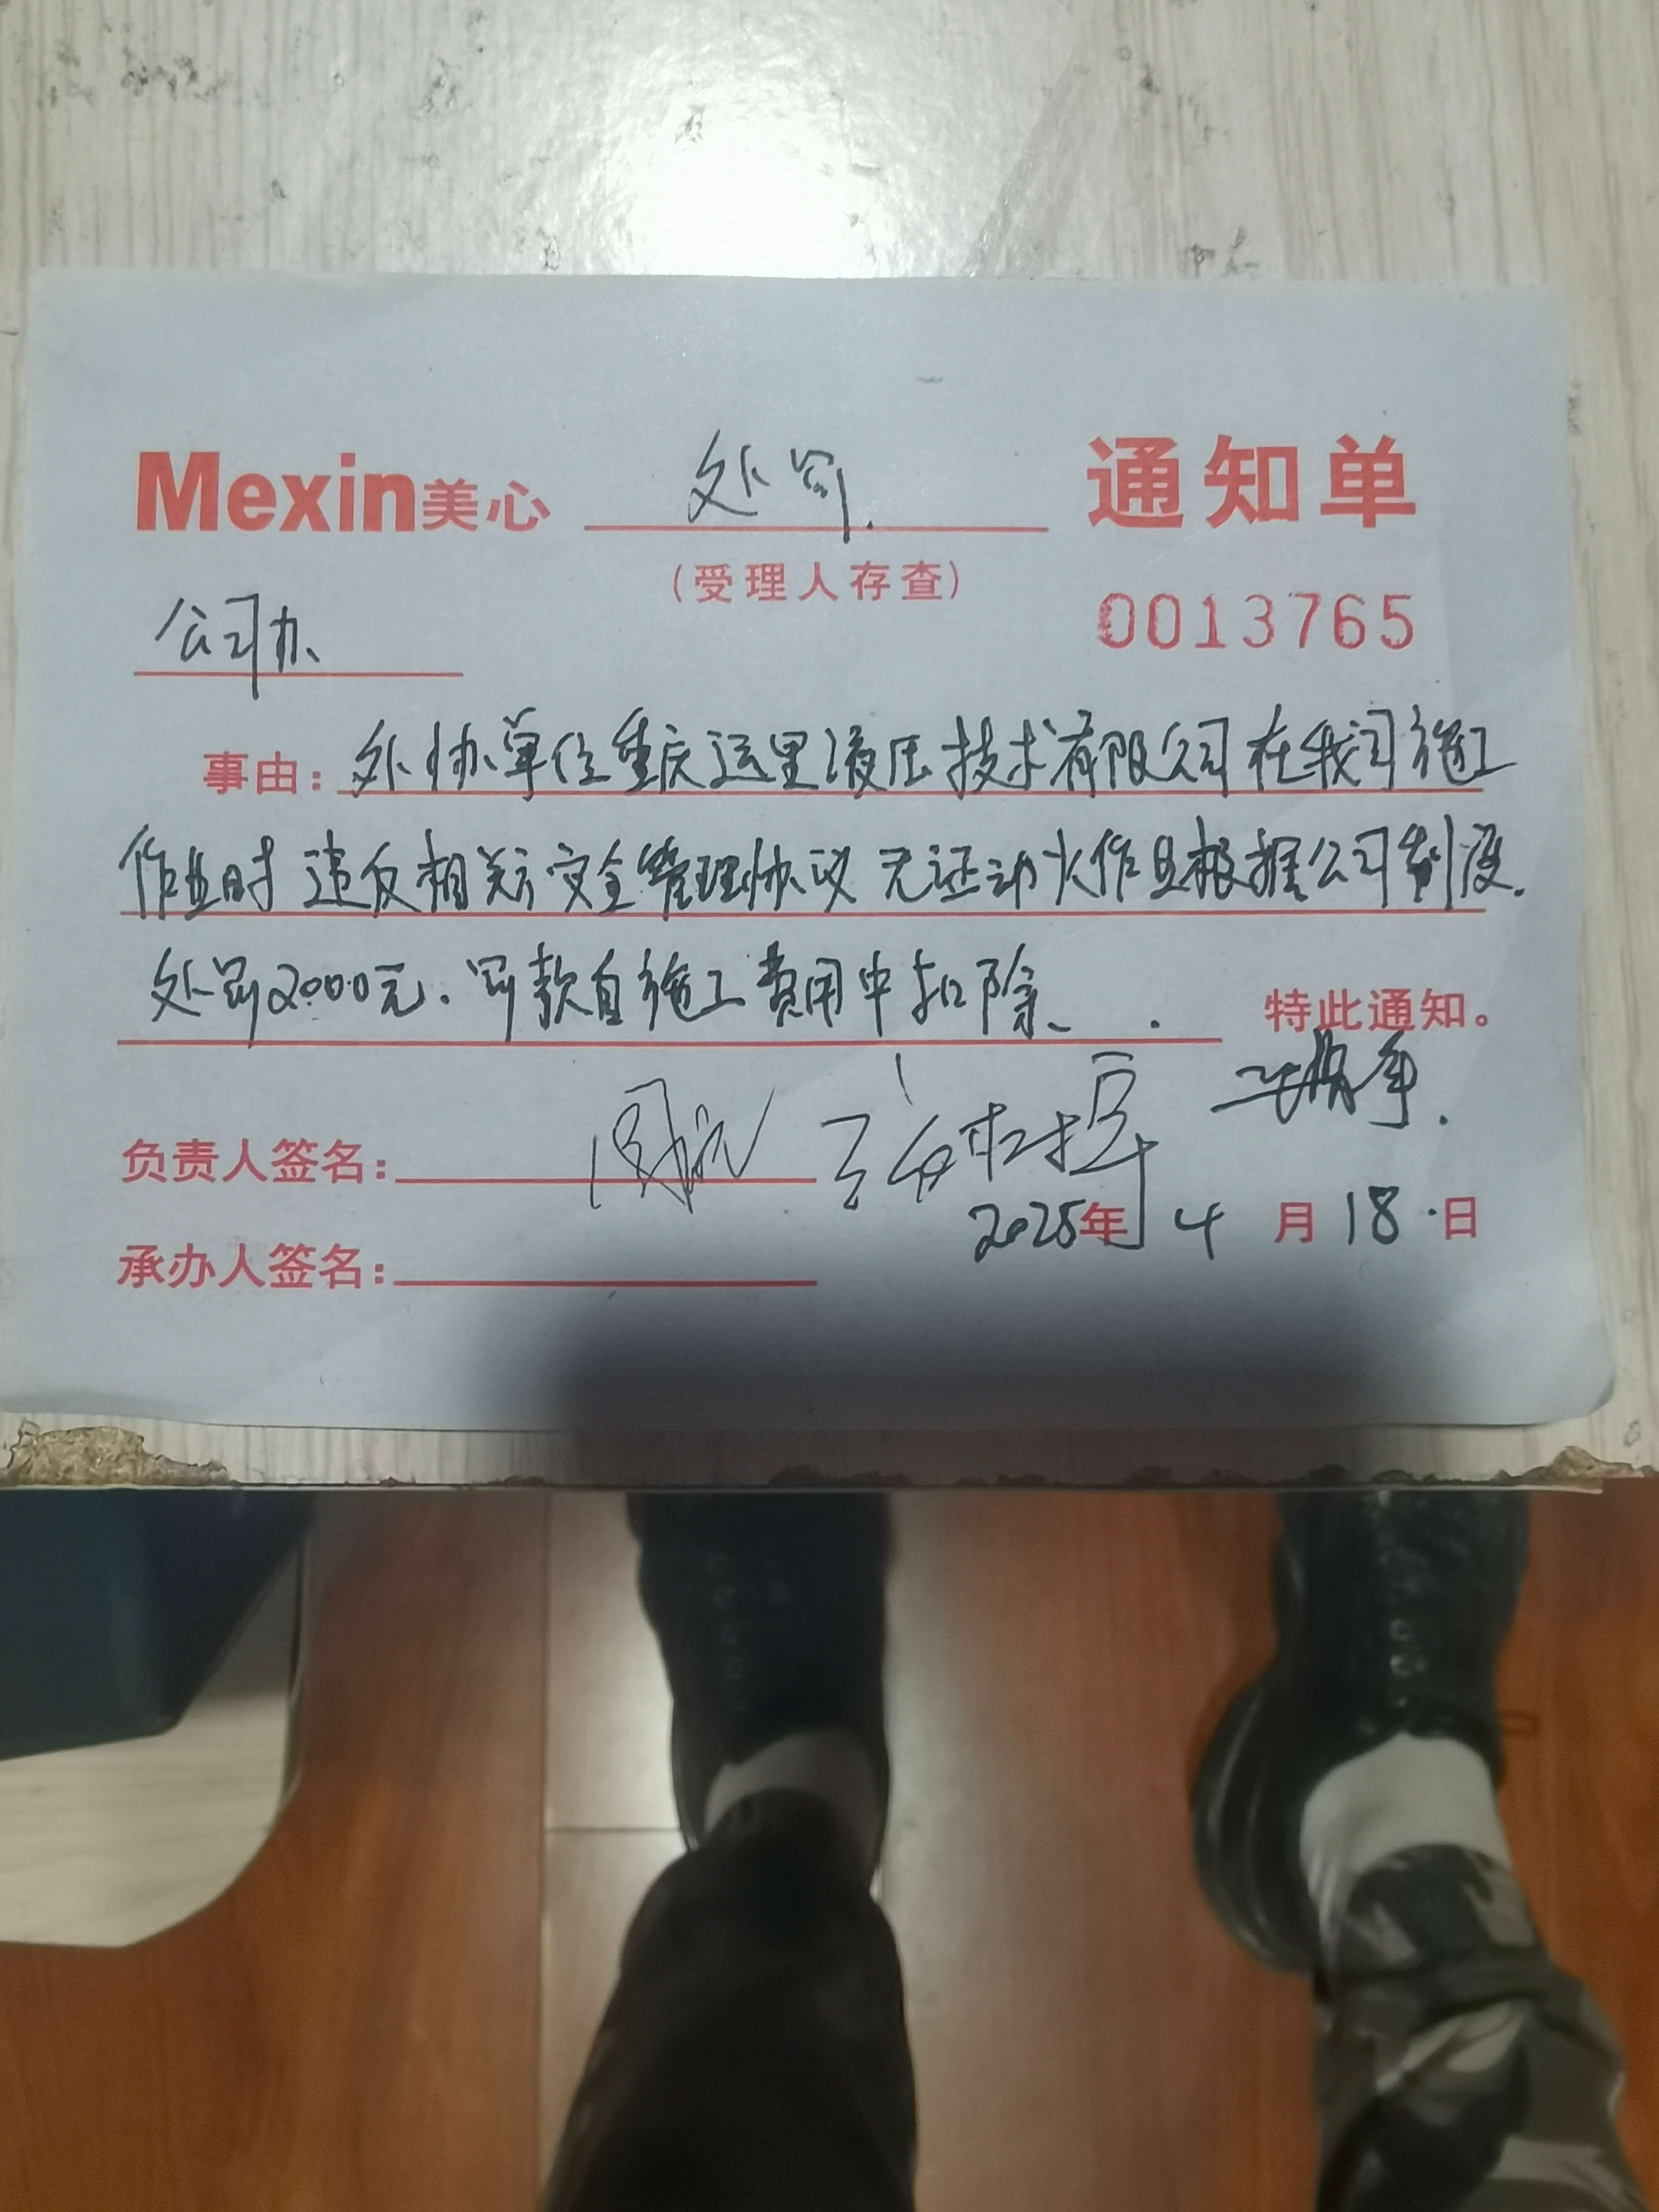 Mexin美心 处罚. 通知单
(受理人存查)
0013765
公司办、
事由: 外协单位重庆运里液压技术有限公司在我司施工
作业时违反相关安全管理协议无证动火作业根据公司制度.
处罚2000元.罚款自施工费用中扣除、. 特此通知。
负责人签名:
2025年4月18日
承办人签名: